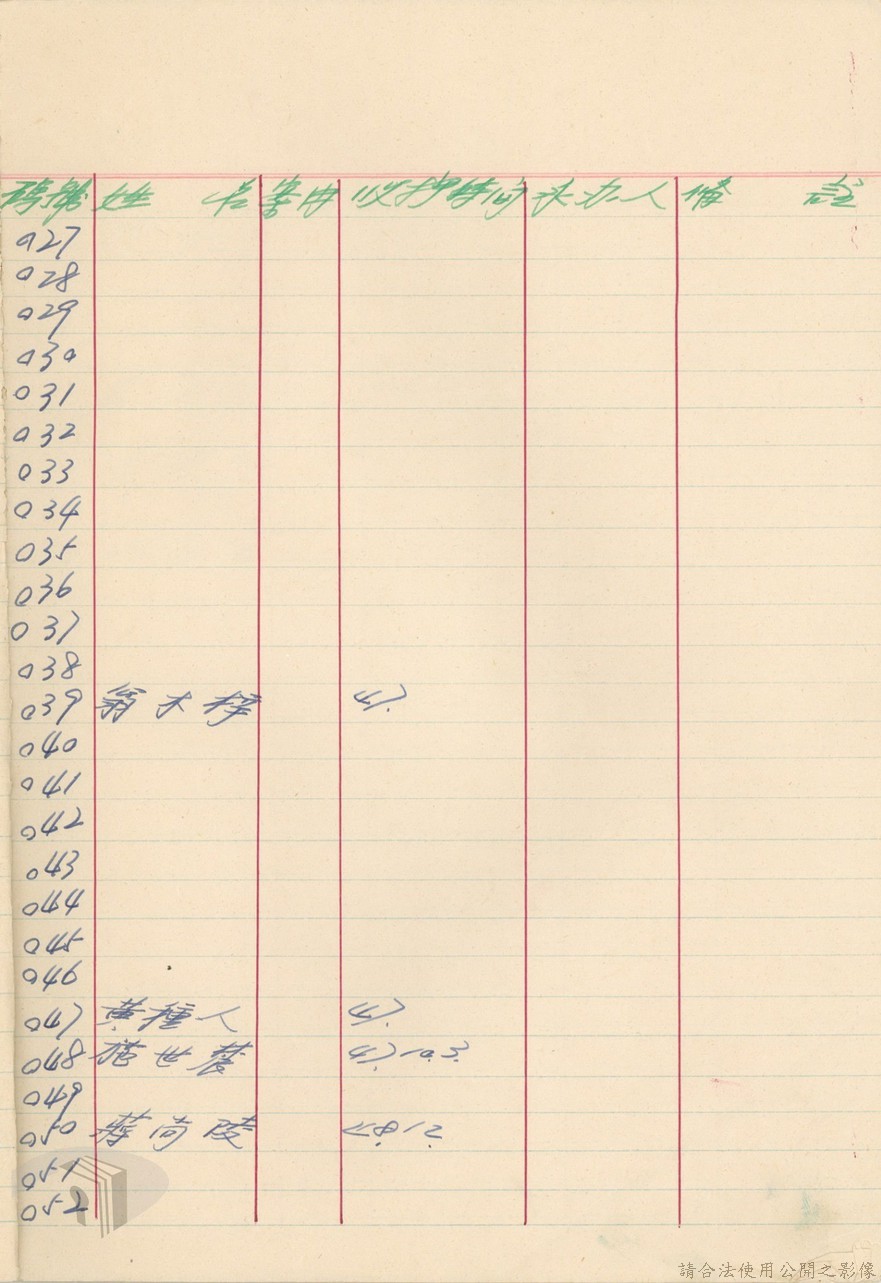 碼號 姓 名 案由 收押時间 承办人 備 註
027
028
029
030
031
032
033
034
035
036
037
038
039 翁木榉 47.
040
041
042
043
044
045
046
047 黃種人 47.
048 世 47.10.3.
049
050 蔣尚陵 48.12.
051
052
請合法使用公開之影像